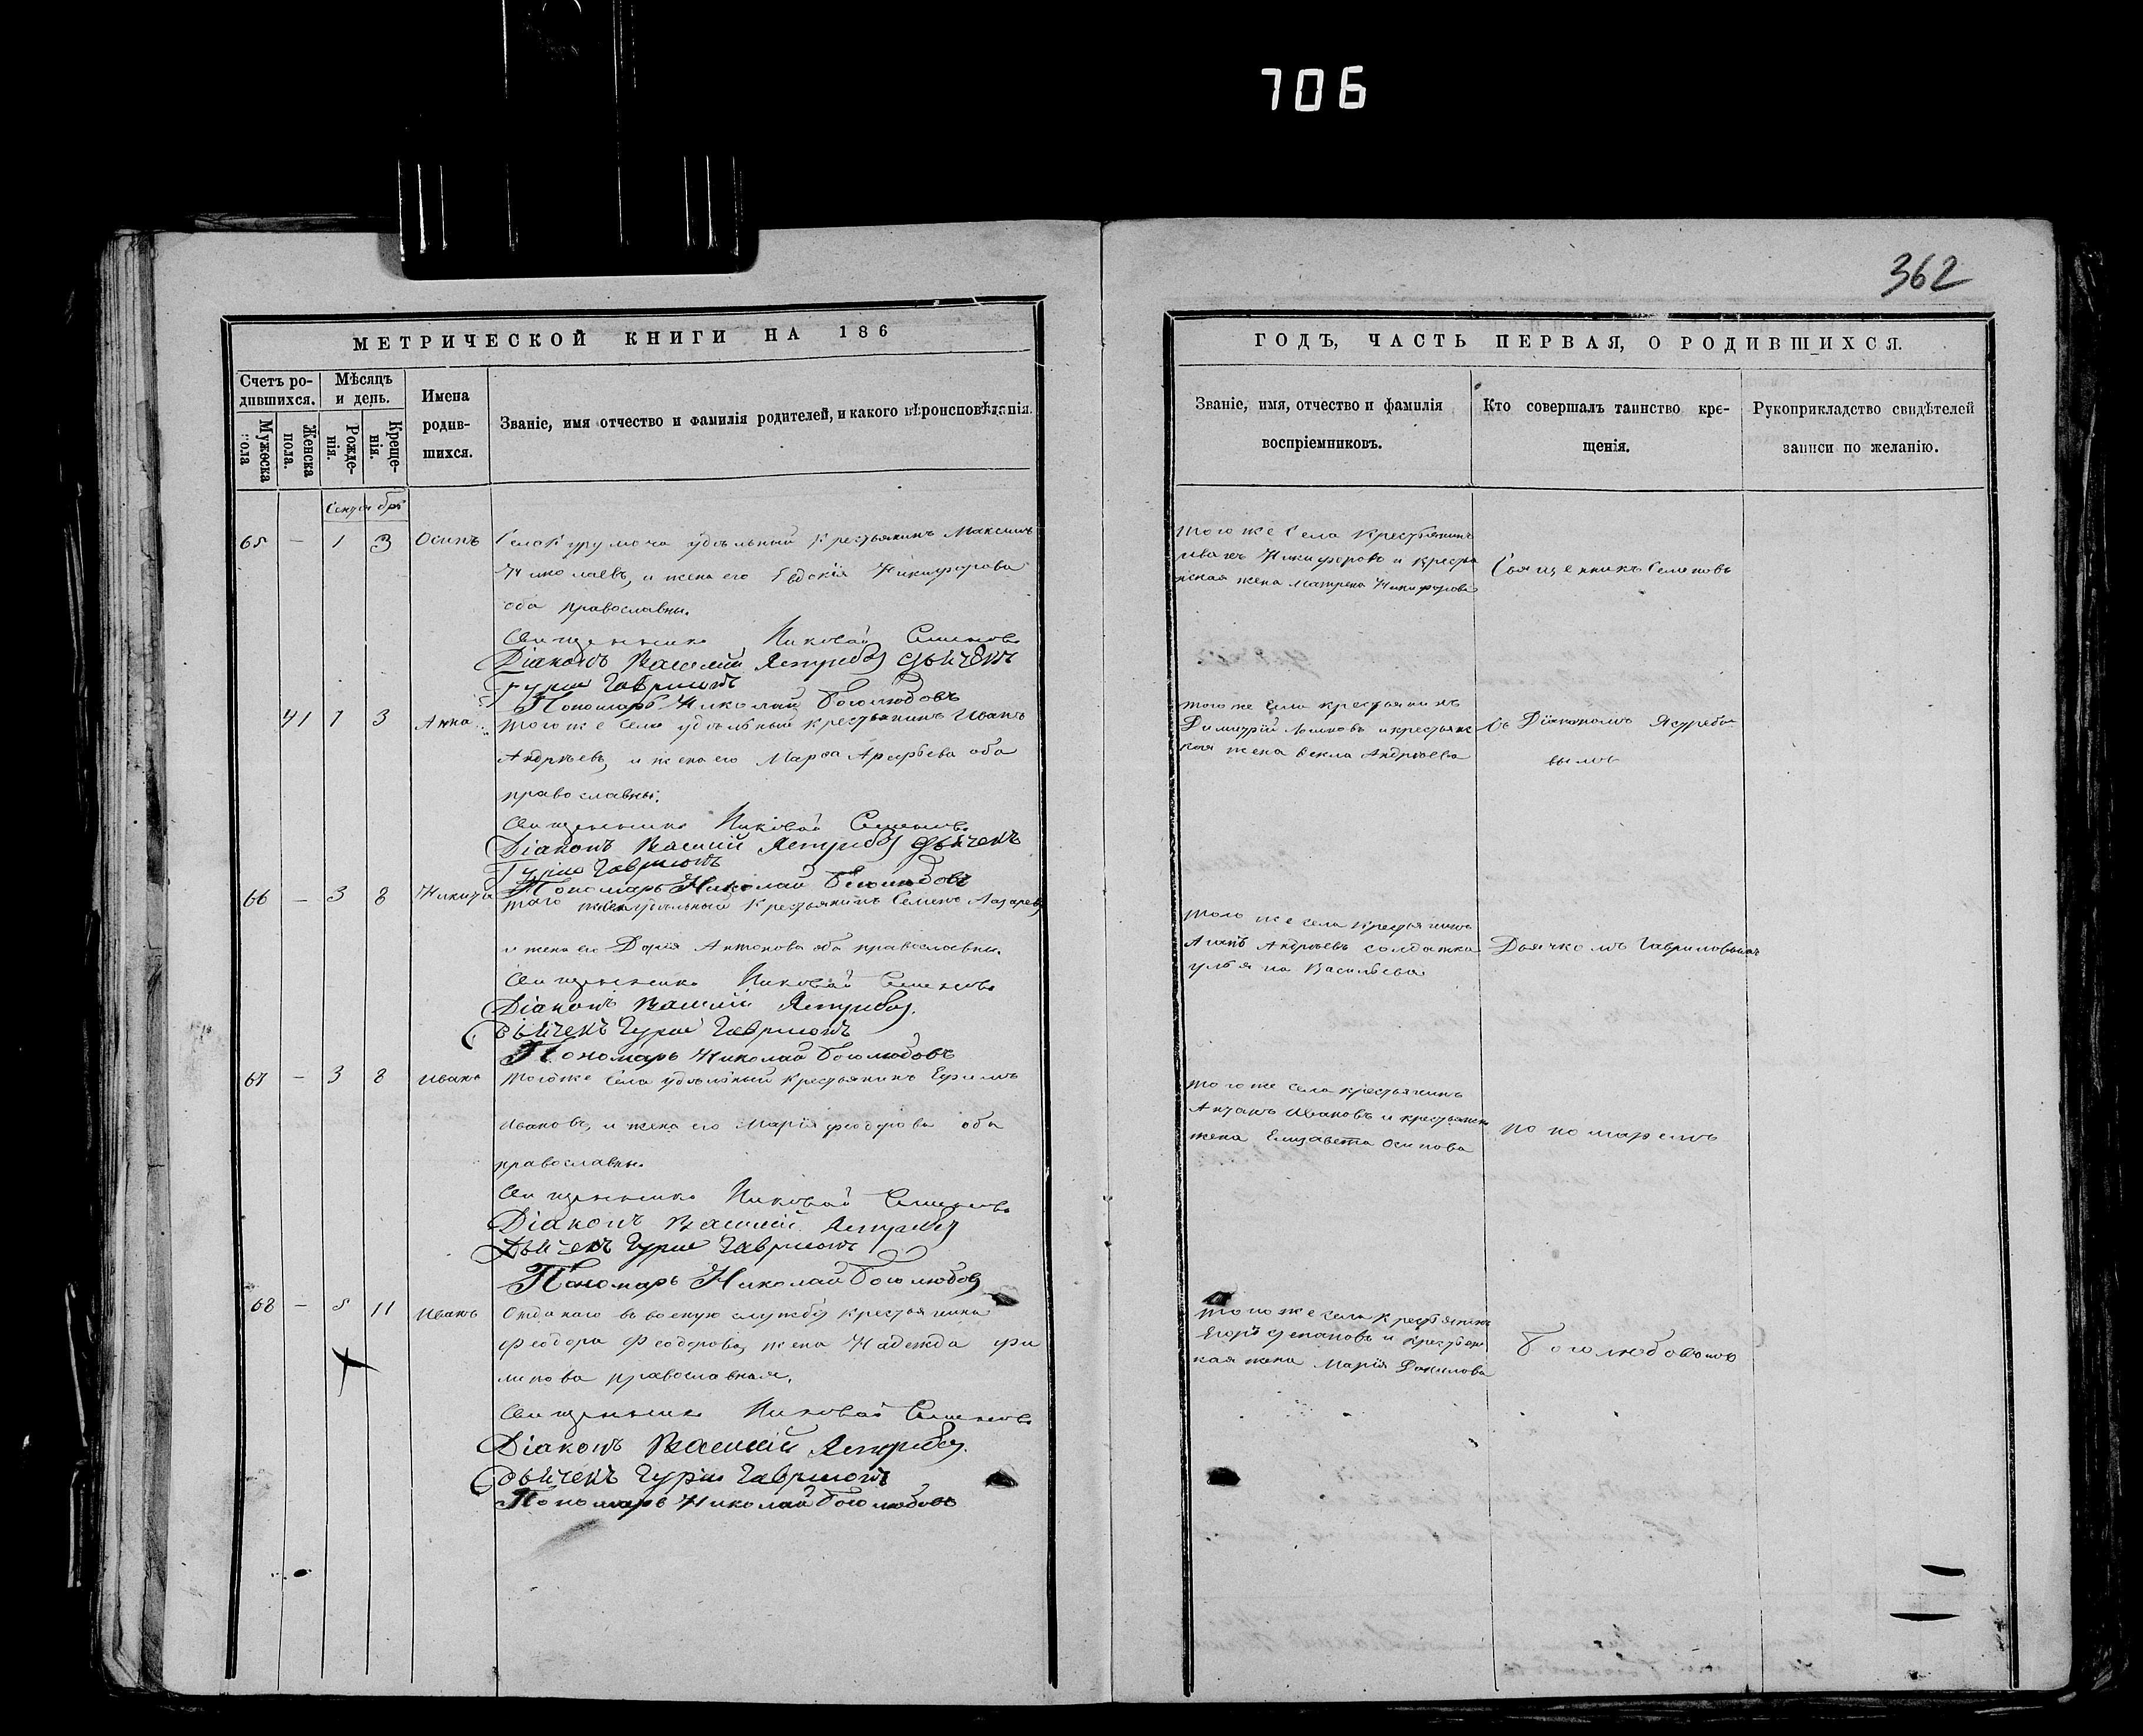 706
362
МЕТРИЧЕСКОЙ КНИГИ НА 186
Счетъ ро-
дившихся.
Мѣсяцъ
и день.
Имена
родив-
шихся.
Званіе, имя отчество и фамилія родителей, и какого вѣроисповѣданія.
Мужеска
пола
Женска
пола.
Рожде-
нія.
Креще-
нія.
Сентябрь
65 — 1 3 Осипъ Села Курумоча удѣльный крестьянинъ Максимъ
Николаевъ, и жена его Евдокія Никифорова
оба православны.
Священникъ Николай Семеновъ
Діаконъ Василій Ястребовъ Дьячекъ
Гурій Гавриловъ
Пономарь Николай Боголюбовъ
41 1 3 Анна того же села удѣльный крестьянинъ Иванъ
Андреевъ, и жена его Марѳа Арефьева оба
православны.
Священникъ Николай Семеновъ
Діаконъ Василій Ястребовъ Дьячекъ
Гурій Гавриловъ
Пономарь Николай Боголюбовъ
66 — 3 8 Никита того же села удѣльный крестьянинъ Семенъ Лазаревъ
и жена его Дарія Антонова оба православны.
Священникъ Николай Семеновъ
Діаконъ Василій Ястребовъ.
Дьячекъ Гурій Гавриловъ
Пономарь Николай Боголюбовъ
67 — 3 8 Иванъ того же села удѣльный крестьянинъ Ефимъ
Ивановъ, и жена его Марія Феодорова оба
православны.
Священникъ Николай Семеновъ
Діаконъ Василій Ястребовъ
Дьячекъ Гурій Гавриловъ
Пономарь Николай Боголюбовъ
68 — 5 11 Иванъ Отданаго въ военую службу крестьянина
Феодора Феодорова, жена Надежда Фи
липова православная.
Священникъ Николай Семеновъ
Діаконъ Василій Ястребовъ.
Дьячекъ Гурій Гавриловъ
Пономарь Николай Боголюбовъ
ГОДЪ, ЧАСТЬ ПЕРВАЯ, О РОДИВШИХСЯ.
Званіе, имя, отчество и фамилія
воспріемниковъ.
Кто совершалъ таинство кре-
щенія.
Рукоприкладство свидѣтелей
записи по желанію.
того же села крестьянинъ
Иванъ Никифоровъ и крестья
нская жена Матрена Никифорова
Священникъ Семеновъ
того же села крестьянинъ
Димитрій и крестьянс
кая жена Ѳекла Андреева
Съ Діакономъ Ястребо
вымъ
того же села крестьянинъ
Андреевъ солдатка
Ульяна Васильева
Дьячкомъ Гавриловымъ
того же села крестьянинъ
Ивановъ и крестьянск
жена Елизавета Осипова
пономаремъ
того же села крестьянинъ
Егоръ Степановъ и крестьянс
кая жена Марія Данилова
Боголюбовымъ